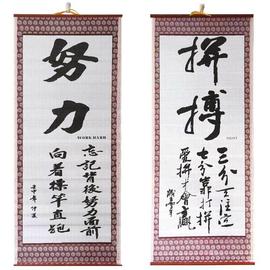 努力
WORK HARD
忘記背後努力面前
向着標竿直跑
拼搏
三分天注定
七分靠打拼
愛拼才會贏